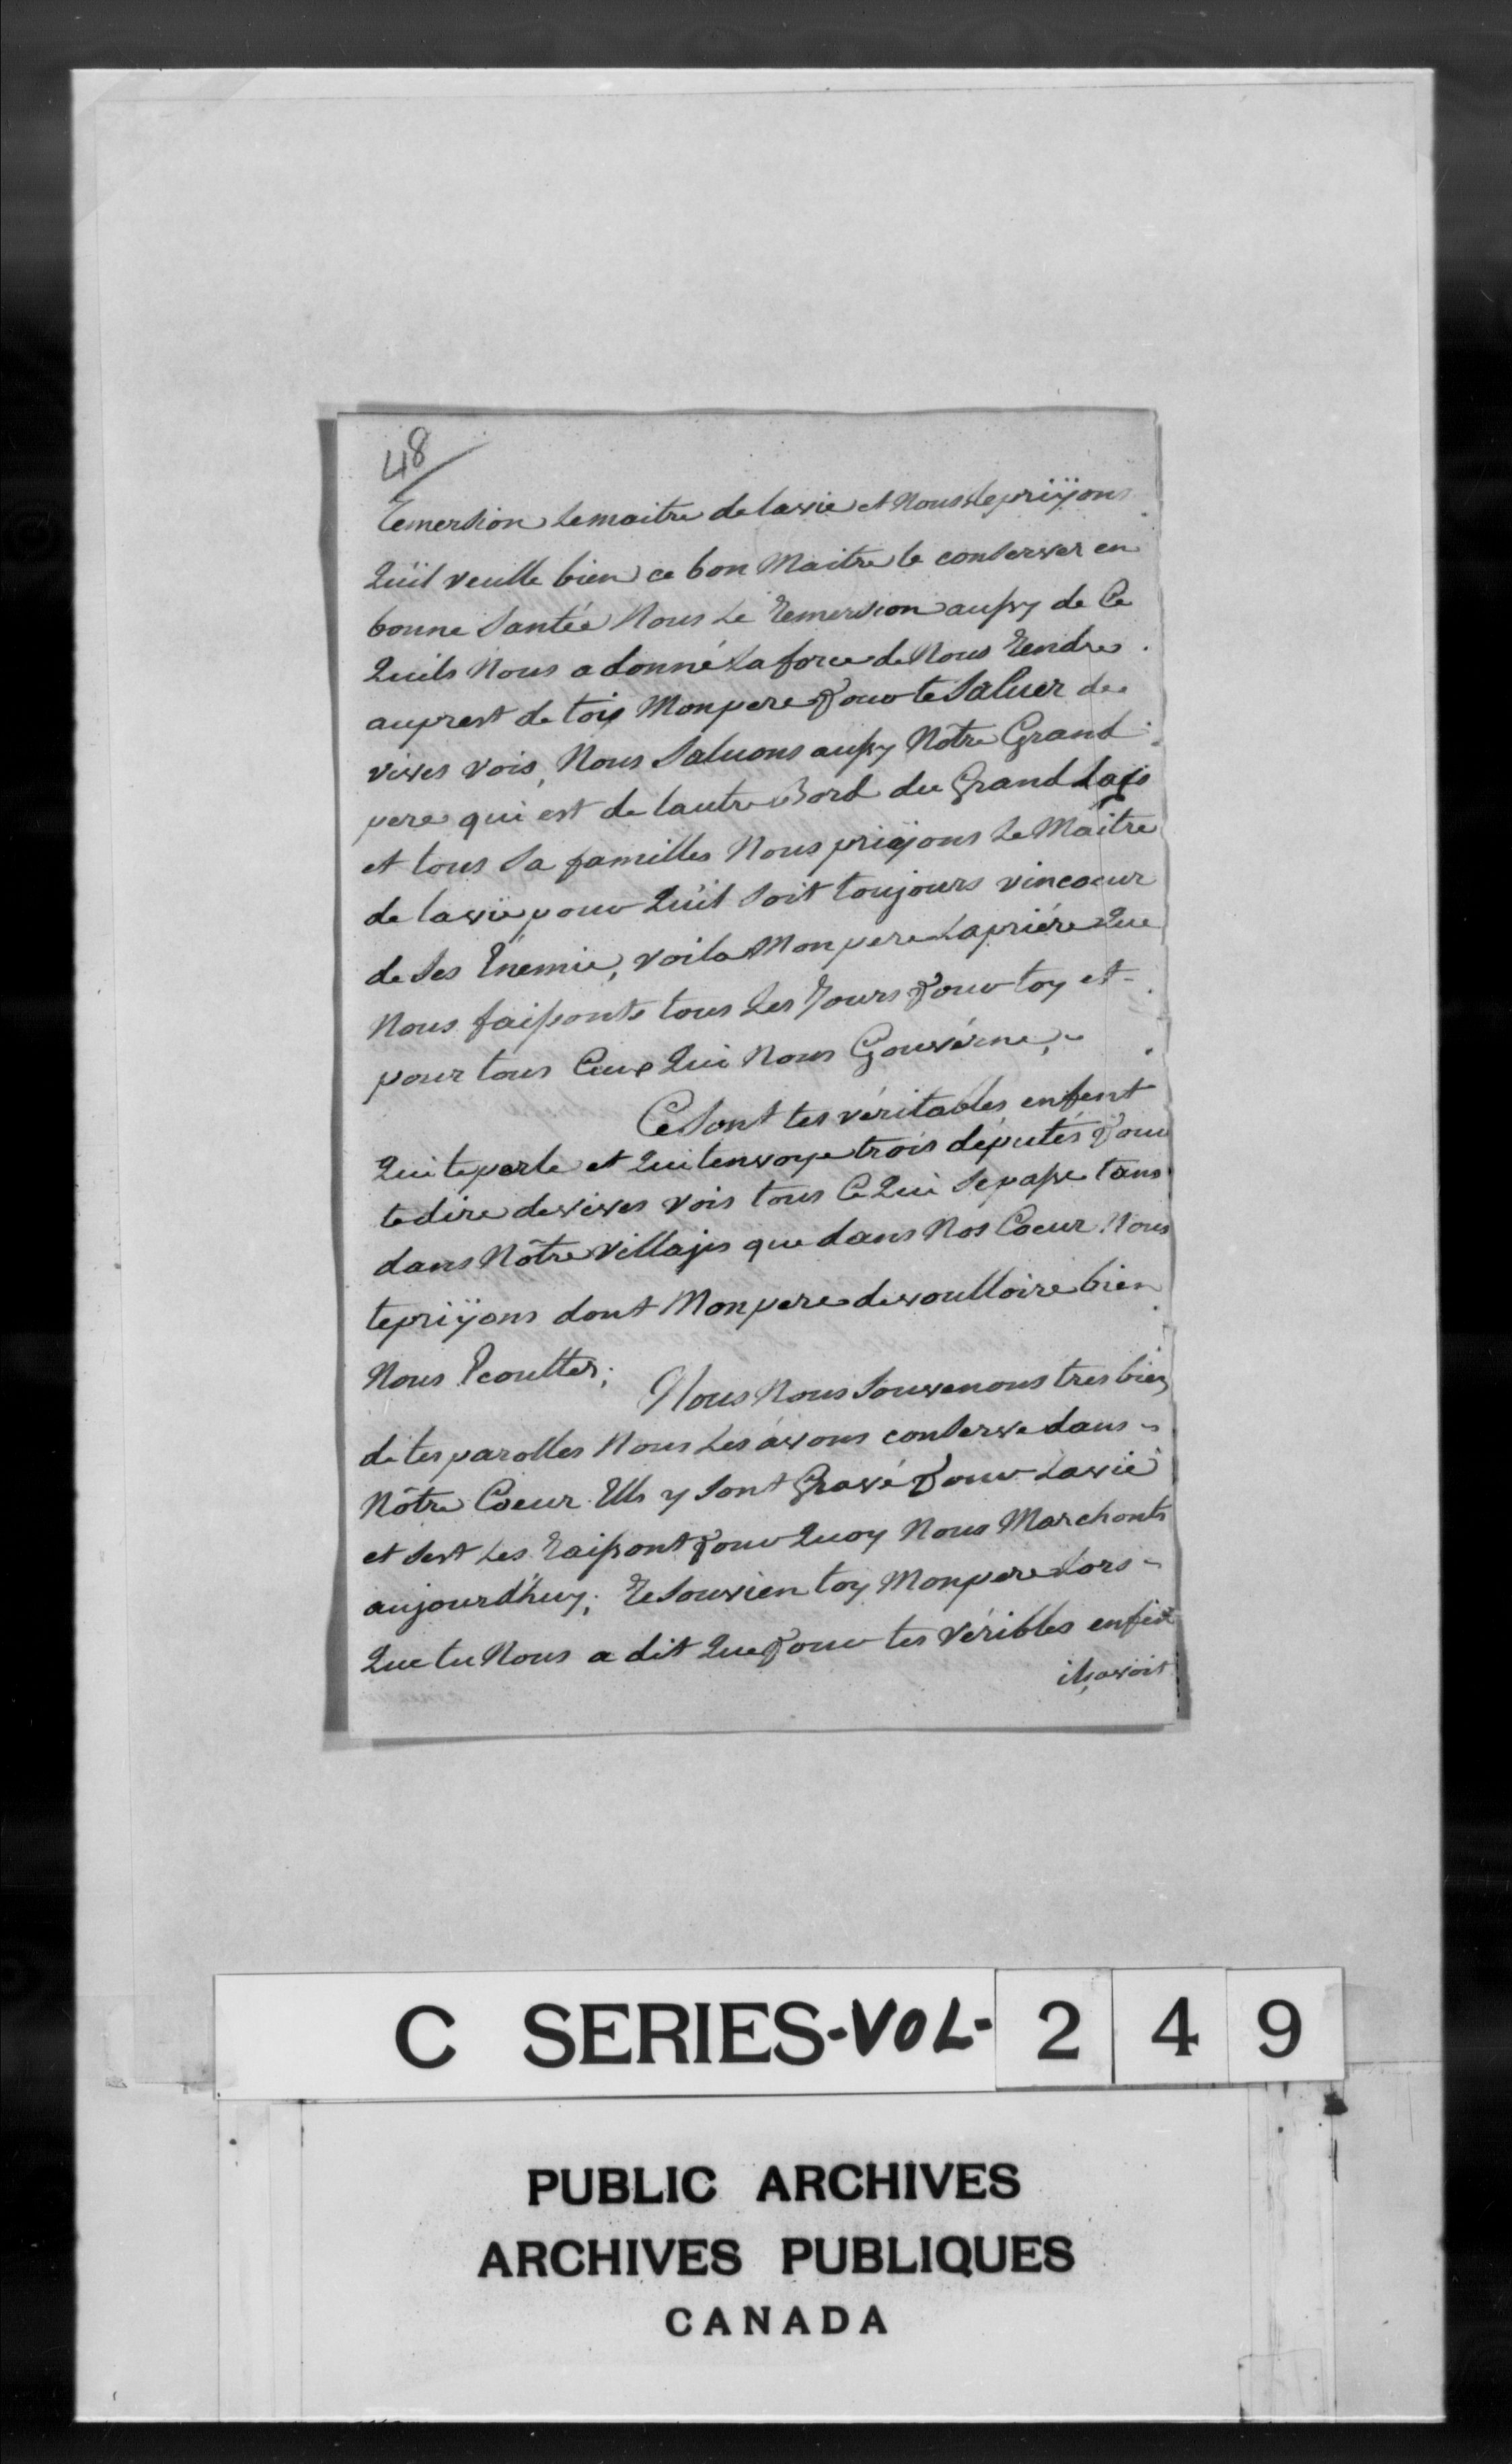 48
Remersion Lemaitre de lavie et Nous Lepriÿons
Quil veulle bien ce bon Maitre te conserver en
bonne Santée Nous Le Remersion aussy de Ce
Quils Nous a donné La force de Nous Rendre
auprest de toix Monpere Pour te Saluer de
vives vois, Nous Saluons aussy Nôtre Grand
pere qui est de lautre Bord du Grand Lacs
et tous Sa familles Nous priÿons Le Maitre
de lavie pour Quil Soit toujours vincoeur
de Ses Enemie, voila Monpere Lapriére Que
Nous faissonts tous Les Jours Pour toy et
pour tous Ceux Qui Nous Gouvérne,
Ce Sont tes véritables enfent
Qui te parle et Qui tenvoye trois députés Pour
te dire de vives vois tous Ce Qui Se passe tans
dans Nôtre villajes que dans Nos Coeur Nous
te priÿons dont Monpere de voulloire bien
Nous Ecoulter;
Nous Nous Souvenons tres bien
de tes parolles Nous Les avons conserve dans
Nôtre Coeur Ells y Sont Gravé Pour Lavie
et Sest Les Raissont Pour Quoy Nous Marchonts
aujourdhuy; Resouvien toy Monpere Lors
Que tu Nous a dit Que Pour tes vérible enfent
ils avoit
C SERIES-VOL-249
PUBLIC ARCHIVES
ARCHIVES PUBLIQUES
CANADA